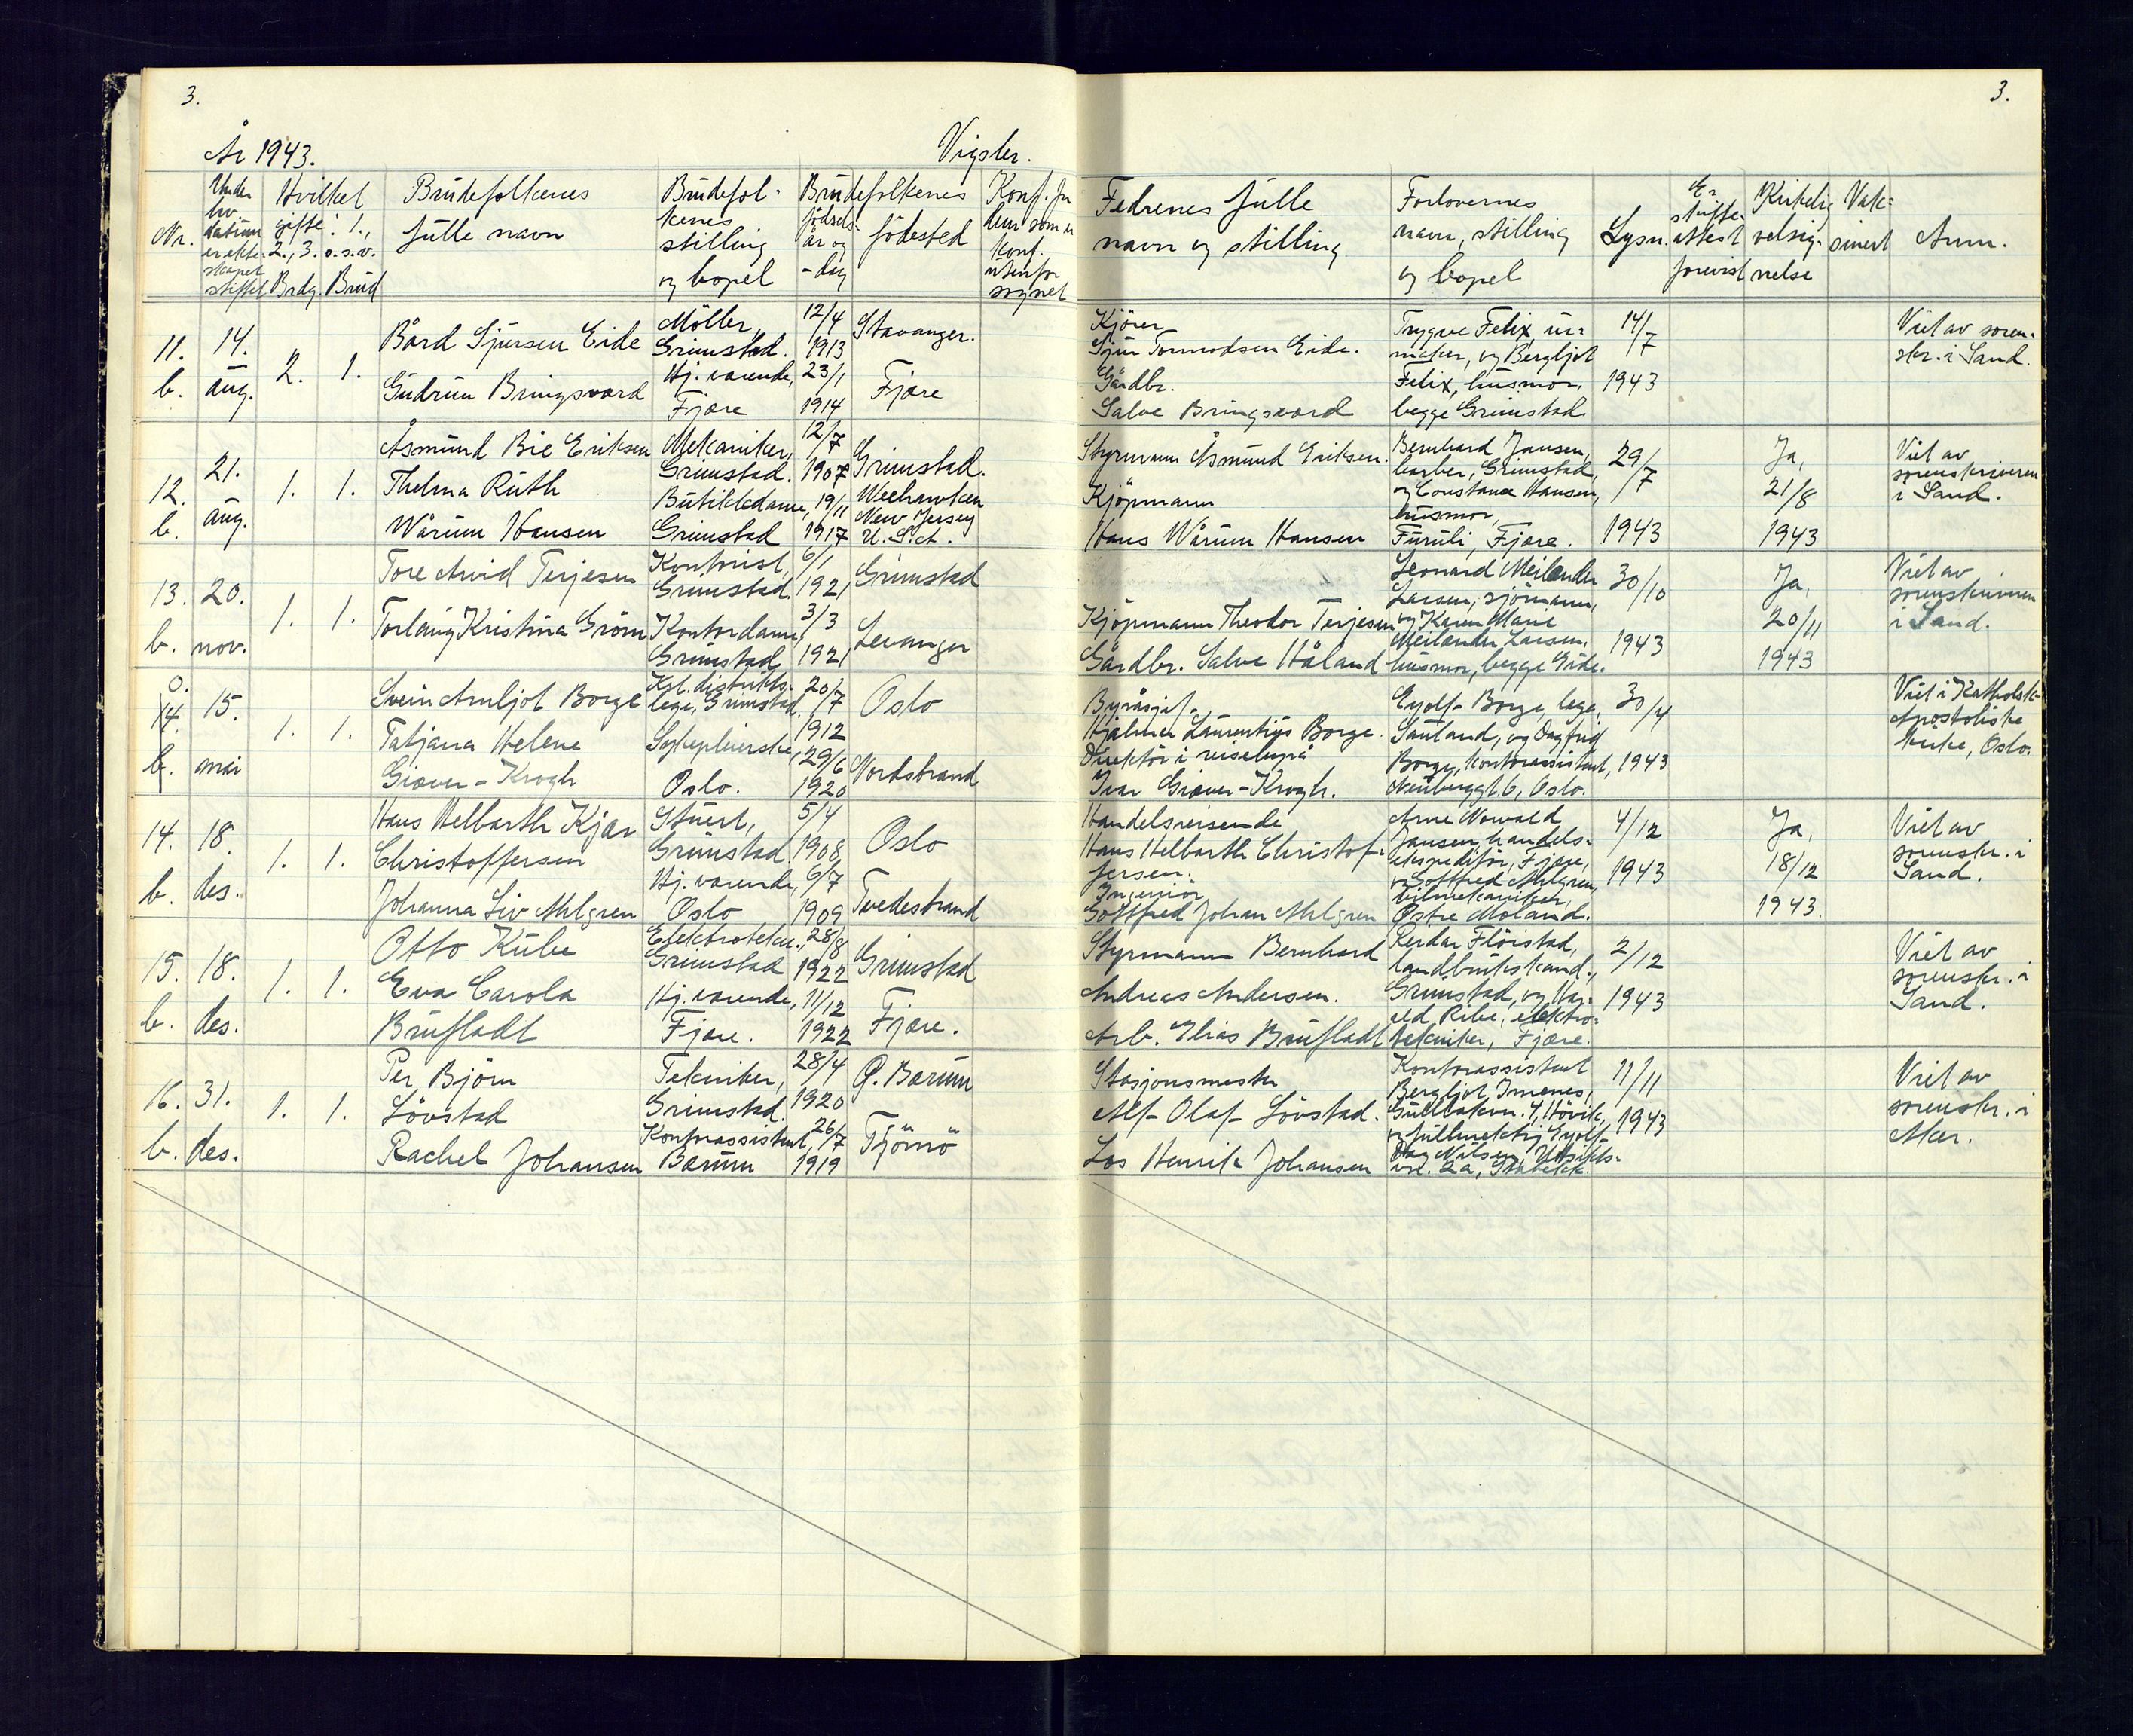 3.
År 1943.
Vigsler.
Nr.
Under
hv.
datum
er ekte-
skapet
stiftet
Hvilket
gifte: 1.,
2., 3. o.s.v.
Brdg. Brud
Brudefolkenes
fulle navn
Brudefol-
kenes
stilling
og bopel
Brudefolkenes
fødsels-
år og
-dag
fødested
Konf. for
dem som er
konf.
utenfor
sognet
11.
b.
14.
aug.
2. 1.
Bård Sjursen Eide
Gudrun Bringsvard
Möller,
Grimstad.
Hj. værende,
Fjære
12/4
1913
23/1
1914
Stavanger.
Fjære
12.
b.
21.
aug.
1. 1.
Åsmund Bie Eriksen
Thelma Ruth
Wårum Hansen
Mekaniker,
Grimstad.
Butikkdame,
Grimstad
12/7
1907
19/11
1917
Grimstad.
Weehawken
New Jersey
U.S.A.
13.
b.
20.
nov.
1. 1.
Tore Arvid Terjesen
Torlaug Kristina Gröm
Kontorist,
Grimstad.
Kontordame,
Grimstad
6/1
1921
3/3
1921
Grimstad
Levanger
0.
14.
b.
15.
mai
1. 1.
Svein Arnljot Borge
Tatjana Helene
Giæver-Krogh
Kst. distrikts-
lege, Grimstad.
Sykepleierske,
Oslo.
20/7
1912
29/6
1920
Oslo
Nordstrand
14.
b.
18.
des.
1. 1.
Hans Helbarth Kjær
Christoffersen
Johanna Liv Ahlgren
Stuert,
Grimstad.
Hj. værende,
Oslo
5/4
1908
6/7
1909
Oslo
Tvedestrand
15.
b.
18.
des.
1. 1.
Otto Kube
Eva Carola
Brufladt
Elektrotekn.,
Grimstad
Hj. værende,
Fjære.
28/8
1922
11/12
1922
Grimstad
Fjære.
16.
b.
31.
des.
1. 1.
Per Björn
Lövstad
Rachel Johansen
Tekniker,
Grimstad.
Kontorassistent,
Bærum
28/4
1920
26/7
1919
Ö. Bærum
Tjömö
3.
Fedrenes fulle
navn og stilling
Forlovernes
navn, stilling
og bopel
Lysn.
Er
skifte-
attest
forevist
Kirkelig
velsig-
nelse
Vak-
sinert
Anm.
Kjörer
Sjur Tormodsen Eide.
Gårdbr.
Salve Bringsvard
Trygve Felix, ur-
maker, og Bergljot
Felix, husmor,
begge Grimstad
14/7
1943
Viet av soren-
skr. i Sand.
Styrmann Åsmund Eriksen.
Kjöpmann
Hans Wårum Hansen
Bernhard Jansen,
barber, Grimstad,
og Constance Hansen,
husmor,
Furuli, Fjære.
29/7
1943
Ja,
21/8
1943
Viet av
sorenskriveren
i Sand.
Kjöpmann Theodor Terjesen
Gårdbr. Salve Håland
Leonard Meilander
Larsen, sjömann,
og Karen Marie
Meilander Larsen,
husmor, begge Eide.
30/10
1943
Ja,
20/11
1943
Viet av
sorenskriveren
i Sand.
Byråsjef
Hjalmar Laurentius Borge.
Direktör i reisebyrå
Ivar Giæver-Krogh.
Eyolf Borge, lege,
Sauland, og Dagfrid
Borge, kontorassistent,
Neuberggt. 6, Oslo.
30/4
1943
Viet i Katholsk-
Apostoliske
kirke, Oslo.
Handelsreisende
Hans Helbarth Christof-
fersen.
Ingeniör
Gottfred Johan Ahlgren
Arne Norvald
Jansen, handels-
ekspeditör, Fjære,
og Gottfred Ahlgren,
bilmekaniker,
Östre Moland.
4/12
1943
Ja,
18/12
1943.
Viet av
sorenskr. i
Sand.
Styrmann Bernhard
Andreas Andersen.
Arb. Elias Brufladt
Reidar Flöistad,
landbrukskand.,
Grimstad, og Har-
ald Ribe, elektro-
tekniker, Fjære.
2/12
1943
Viet av
sorenskr. i
Sand.
Stasjonsmester
Alf Olaf Lövstad.
Los Henrik Johansen
Kontorassistent
Bergljot Imenes,
Gullbakkvn. 4, Hövik,
og fullmektig Eyolf
Dag Nilsen, Utsikts-
vn. 2a, Stabekk.
11/11
1943
Viet av
sorenskr. i
Aker.